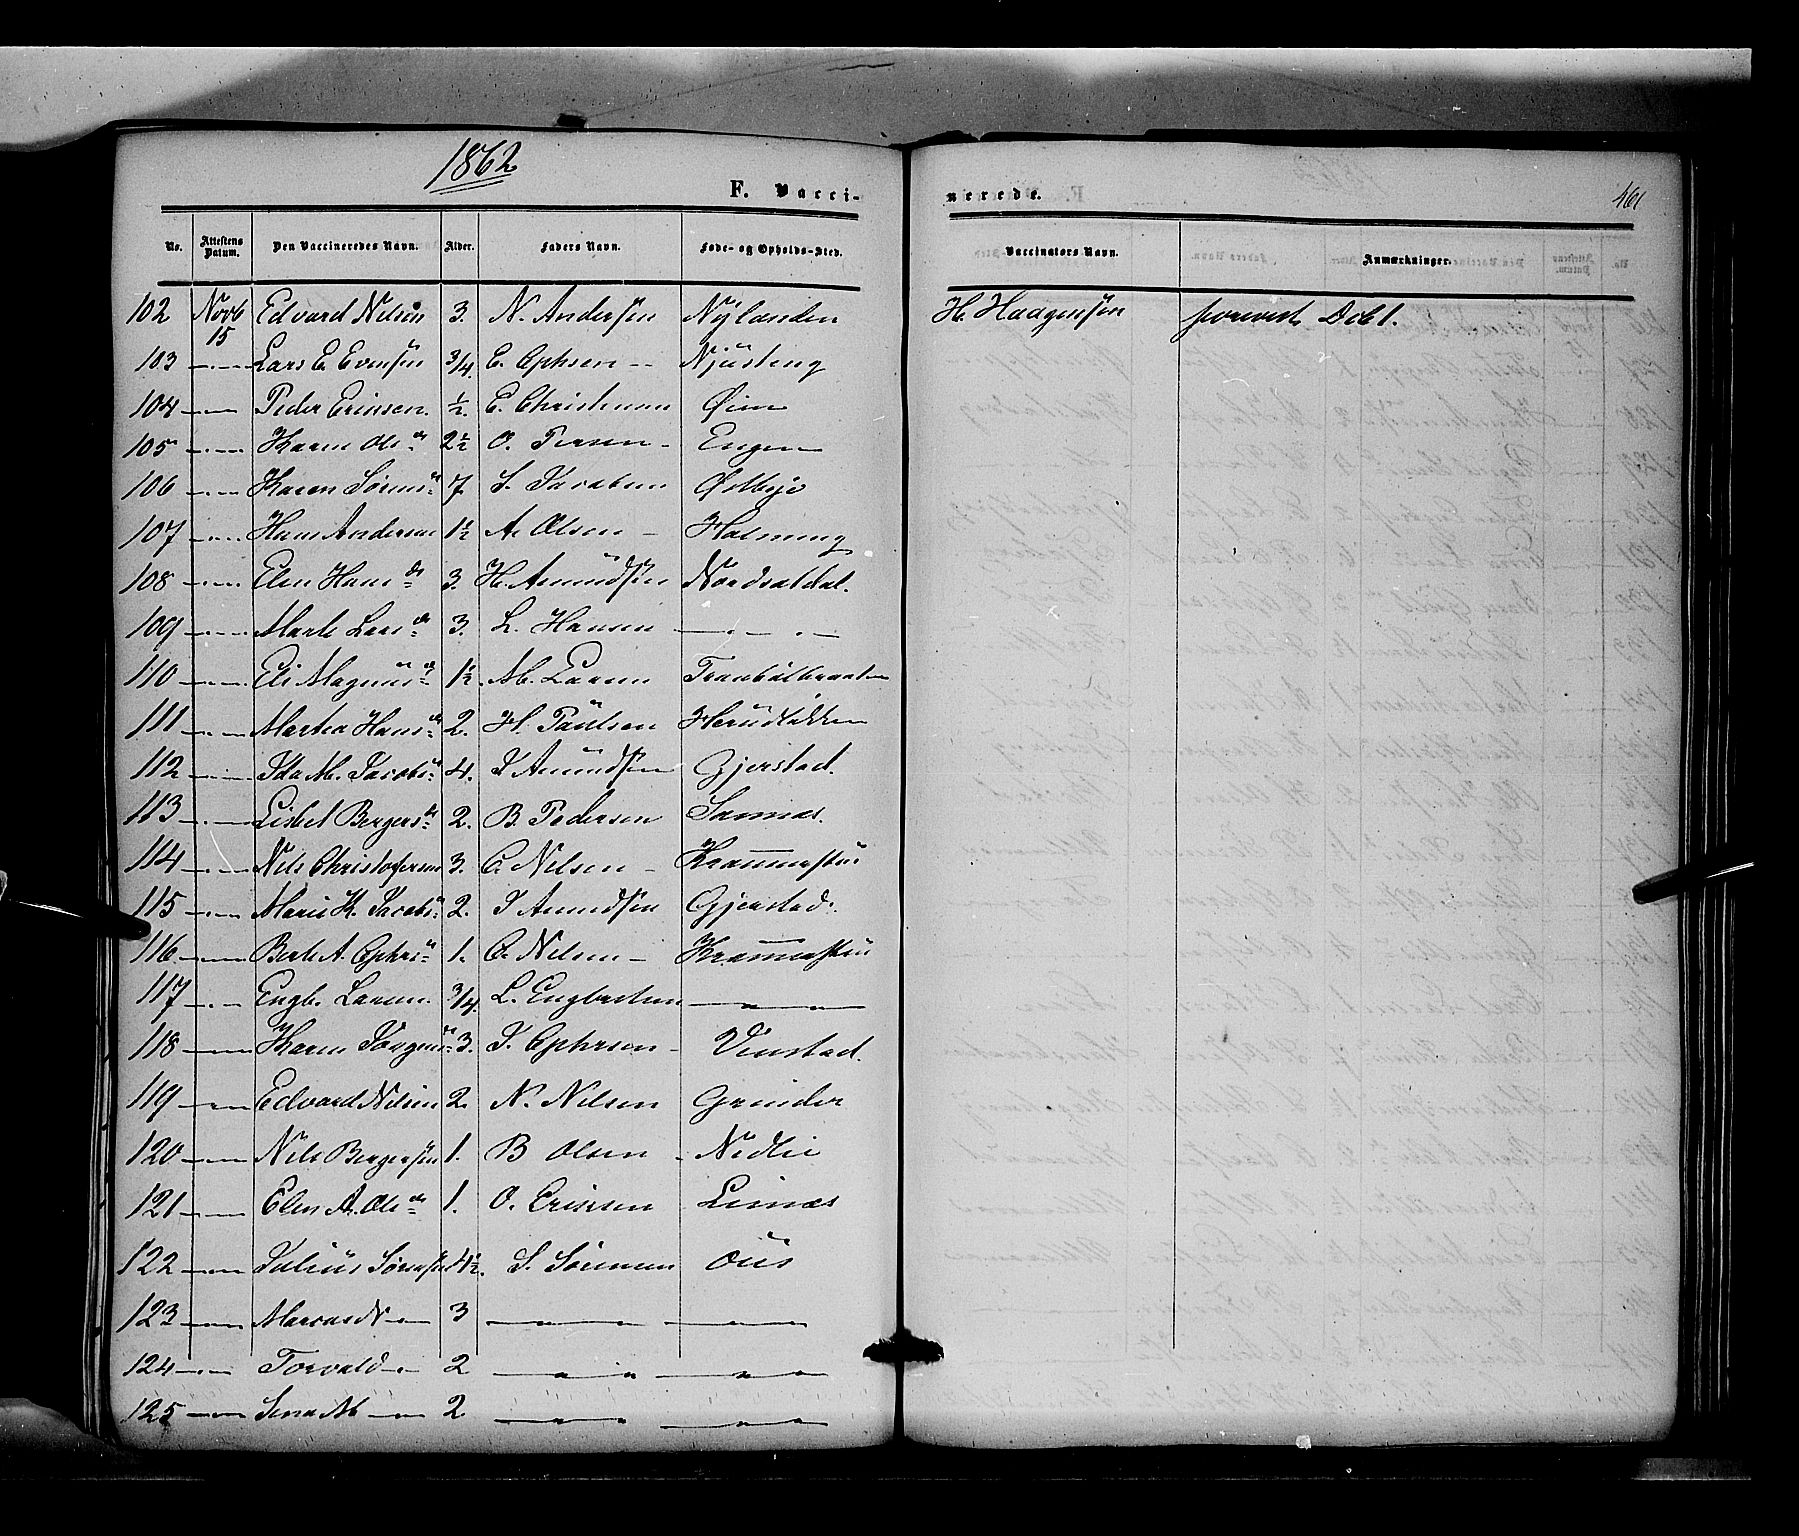 1862
F. Vacci-
nerede.
461
No. Attestens Datum. Den Vaccineredes Navn. Alder. Faders Navn. Føde- og Opholds-Sted. Vaccinators Navn. Anmærkninger.
102 Novb 15 Edvard Nilsen 3. N. Andersen Nylænden H. Haagensen
103 Lars E. Evensen 3/4. E. Ephsen Njüsting
104 Peder Erissen. 1/2. E. Christensen Øien
105 Karen Ols dr 2 1/2 O. Persen Engen
106 Karen Sørens dr 7. S. Jacobsen Østbye
107 Hans Andersen 1 1/2 A. Olsen
108 Elen Hans dr 3. H. Amundsen Nordsaldal.
109 Marte Lars dr 3. L. Hansen
110 Eli Magnus dr 1 1/2. M. Larsen
111 Martea Hans dr 2. H. Paulsen
112 Ida M. Jacobs dr 4. J Amundsen Gjerstad.
113 Lisbet Bergers dr 2. B. Pedersen Sannes.
114 Nils Christofersen 3. C. Nilsen
115 Marie K. Jacobs dr 2. J Amundsen Gjerstad.
116 Berte A. Ephrs dr 1. C. Nilsen
117 Engb. Larsen. 3/4. L. Engbretsen
118 Karen Jørgens dr 3. J. Ephrsen Vinstad.
119 Edvard Nilsen 2. N. Nilsen Grinder
120 Nils Bergersen 1. B Olsen Nedlie
121 Elen A. Ols dr 1. O. Erissen Linnæs
122 Julius Sørensen 4 1/2. S. Sørensen
123 3
124 Torvald 2
125 2